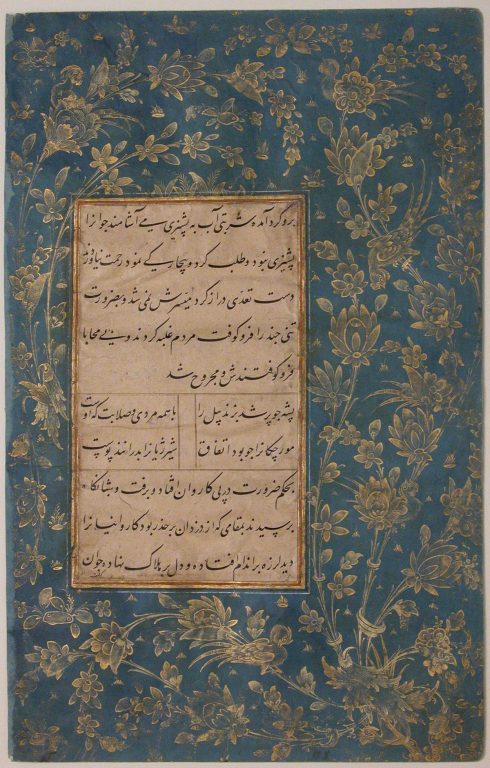 برو گرد آمده شربتی آب به پشیزی همی آشامند جوانرا
پشیزی نبود و طلب کرد و بیچارگی نمود رحمت نیاوردند
دست تعدی دراز کرد میسرش نمی شد و بضرورت
تنی چند را فرو کوفت مردم غلبه کردند و بی محابا
فرو کوفتندش و مجروح شد
پشه چو پر شد بزند پیل را با همه مردی و صلابت که اوست
مورچگانرا چو بود اتفاق شیر ژیانرا بدرانند پوست
بحکم ضرورت در پی کاروان فتاد و برفت و شبانگاه
برسیدند بمقامی که از دزدان بر حذر بود کاروانیانرا
دید لرزه بر اندام افتاده و دل بر هلاک نهاده جوان